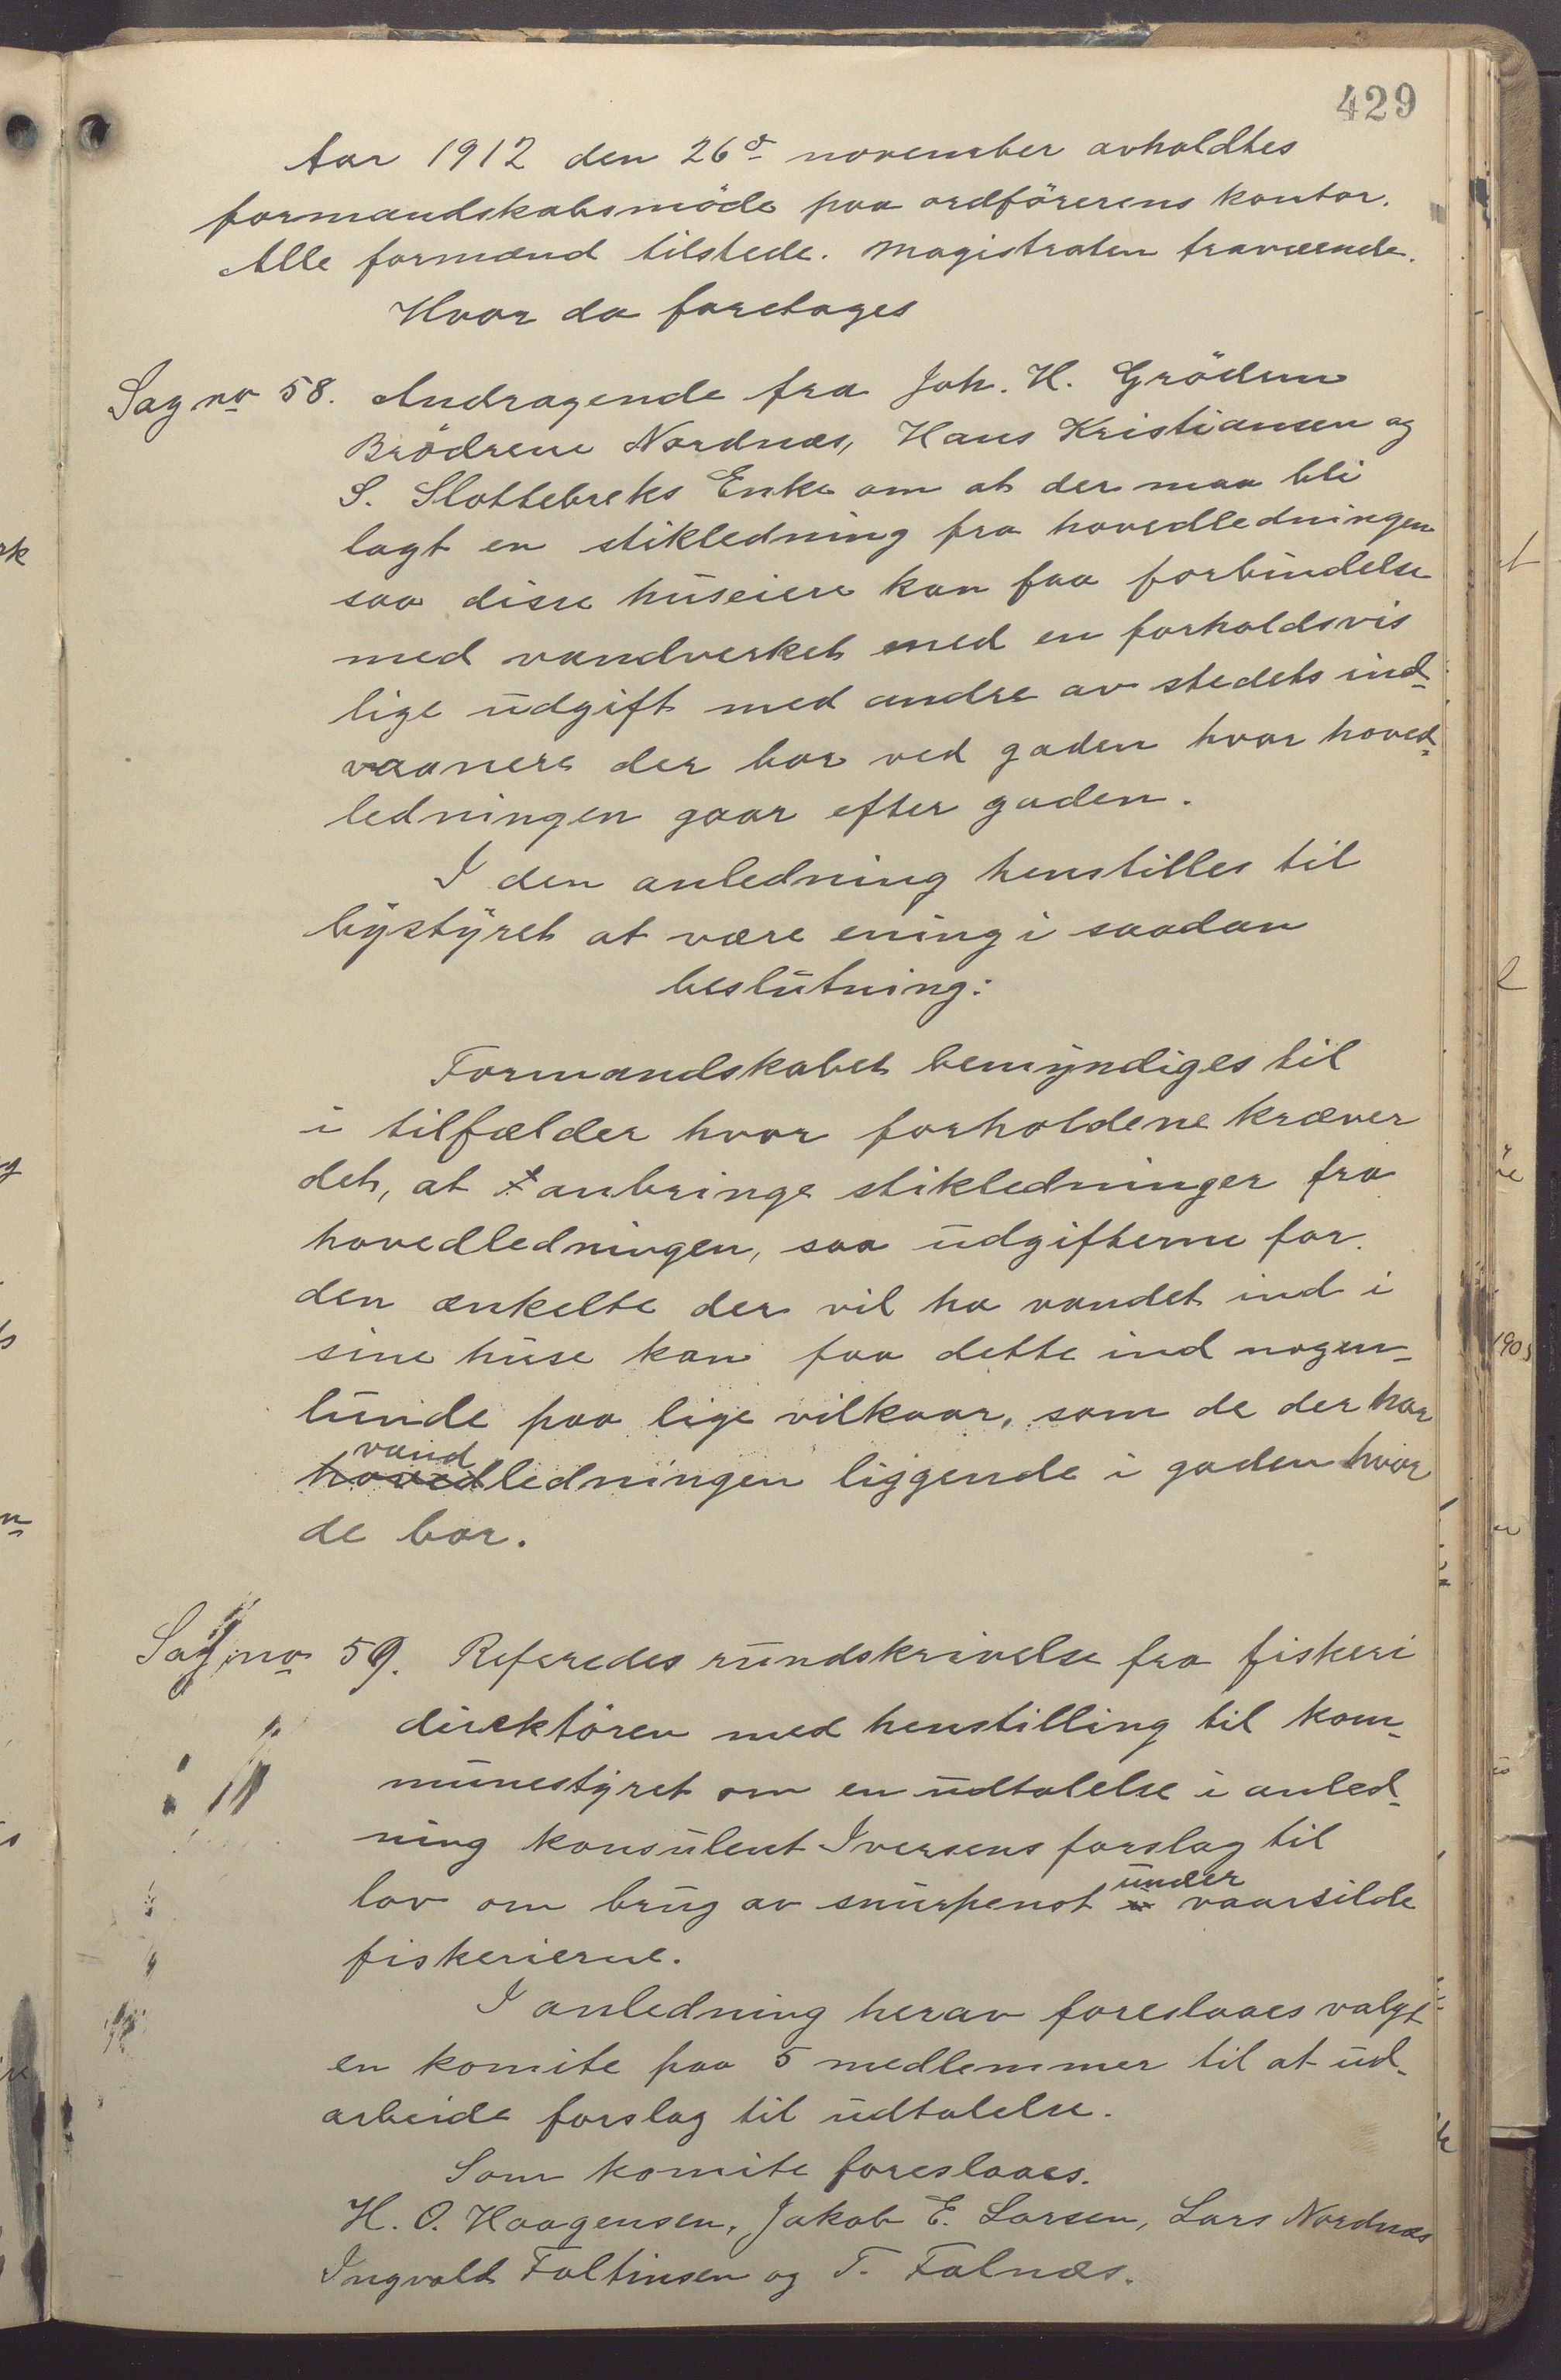 429
Aar 1912 den 26d november avholdtes
formandskabsmöde paa ordförerens kontor.
Alle formænd tilstede. Magistraten fraværende.
Hvor da foretages
Sag no 58. Andragende fra Joh. H. Grödem
Brödrene Nordnæs, Hans Kristiansen og
S. Slottebreks Enke om at der maa bli
lagt en stikledning fra hovedledningen
saa disse huseiere kan faa forbindelse
med vandverket med en forholdsvis
lige udgift med andre av stedets ind-
vaanere der bor ved gaden hvor hoved-
ledningen gaar efter gaden.
I den anledning henstilles til
bystyret at være ening i saadan
beslutning:
Formandskabet bemyndiges til
i tilfælder hvor forholdene kræver
det, at anbringe stikledninger fra
hovedledningen, saa udgifterne for
den ænkelte der vil ha vandet ind i
sine huse kan faa dette ind nogen-
lunde paa lige vilkaar, som de der har
vand
hovedledningen liggende i gaden hvor
de bor.
Sag no 59. Referedes rundskrivelse fra fiskeri
direktören med henstilling til kom-
munestyret om en udtalelse i anled-
ning konsulent Iversens forslag til
under
lov om brug av snurpenot vaarsilde
fiskerierne.
I anledning herav foreslaaes valgt
en komite paa 5 medlemmer til at ud-
arbeide forslag til udtalelse.
Som komite foreslaaes.
H. O. Haagensen, Jakob E. Larsen, Lars Nordnæs
Ingvald Faltinsen og T. Falnæs.